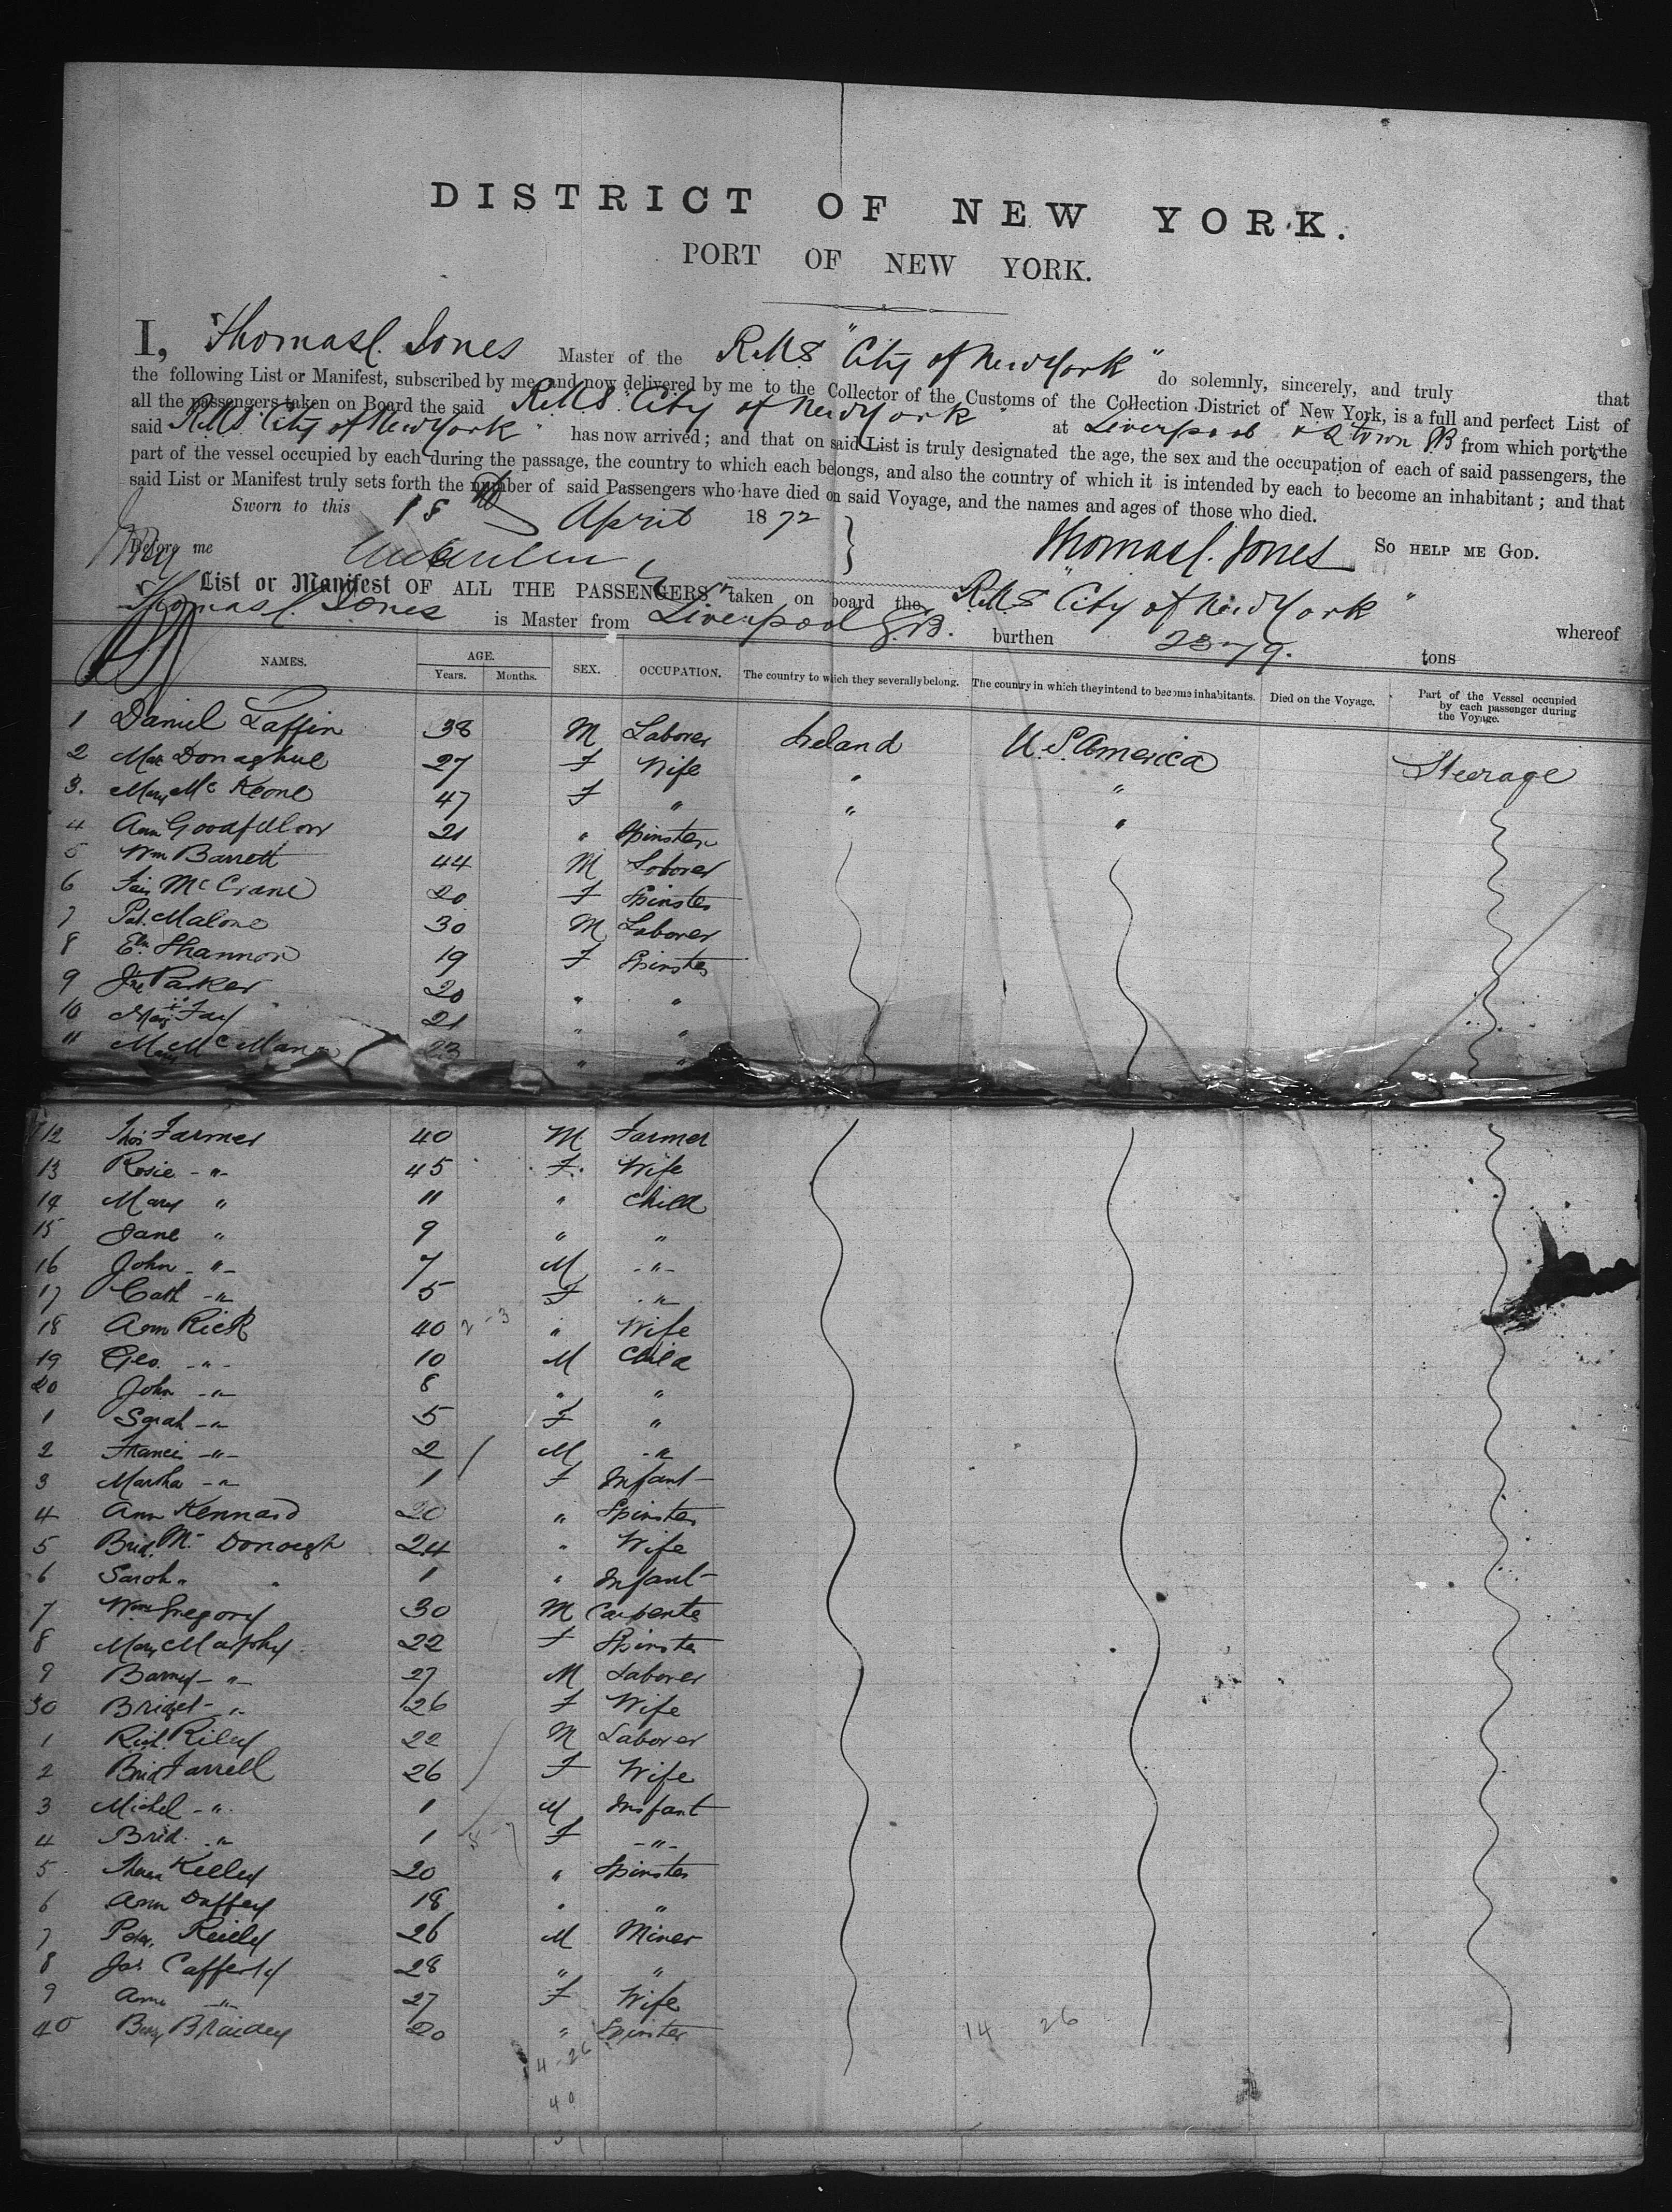 DISTRICT OF NEW YORK.
PORT OF NEW YORK.
I, Thomas C. Jones Master of the R.M.S "City of New York" do solemnly, sincerely, and truly that
the following List or Manifest, subscribed by me, and now delivered by me to the Collector of the Customs of the Collection District of New York, is a full and perfect List of
all the passengers taken on Board the said R.M.S. "City of New York" at Liverpool & Qtown G.B from which port, the
said R.M.S. "City of New York" has now arrived; and that on said List is truly designated the age, the sex and the occupation of each of said passengers, the
part of the vessel occupied by each during the passage, the country to which each belongs, and also the country of which it is intended by each to become an inhabitant; and that
said List or Manifest truly sets forth the number of said Passengers who have died on said Voyage, and the names and ages of those who died.
Sworn to this 18th April 1872
So help me God.
Thomas C. Jones
Before me
List or Manifest OF ALL THE PASSENGERS taken on board the R.M.S "City of New York" whereof
Thomas C. Jones is Master from Liverpool G.B. burthen 2379. tons
NAMES. AGE. Years. Months. SEX. OCCUPATION. The country to which they severally belong. The country in which they intend to become inhabitants. Died on the Voyage. Part of the Vessel occupied by each passenger during the Voyage.
1 Daniel Laffin 38 M Laborer Ireland U.S. America Steerage
2 Mar Donaghue 27 F Wife " "
3. Mary McKeone 47 F " " "
4 Ann Goodfellow 21 " Spinster
5 Wm Barrett 44 M Laborer
6 McCrane 20 F Spinster
7 Pat. Malone 30 M Laborer
8 Eln Shannon 19 F Spinster
9 Jne Parker 20 " "
10 Mary Fay 21 " "
11 Mary McMan 23 " "
12 Thos Farmer 40 M Farmer
13 Rosie -"- 45 F. Wife
14 Mary " 11 " Child
15 Jane " 9 " "
16 John -"- 7 M -"-
17 Cath -"- 5 F -"-
18 Ann Rick 40 " Wife
19 Geo. -"- 10 M Child
20 John -"- 8 " "
1 Sarah -"- 5 F "
2 Francis -"- 2 M -"-
3 Martha -"- 1 F Infant
4 Ann Kennard 20 " Spinster
5 Brid. Mc Donough 24 " Wife
6 Sarah " " 1 " Infant
7 Wm Gregory 30 M Carpenter
8 Mary Murphy 22 F Spinster
9 Barney -"- 27 M Laborer
30 Bridget -"- 26 F Wife
1 Rich. Riley 22 M Laborer
2 Brid Farrell 26 F Wife
3 Michel -"- 1 M Infant
4 Brid. -"- 1 F -"-
5 Kelley 20 " Spinster
6 Ann Duffey 18 " "
7 Peter Reiely 26 M Miner
8 Jas Cafferty 28 " "
9 Ann -"- 27 F Wife
40 Braidey 20 " Spinster
14 26
4-26
40